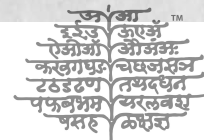 अ आ ™
इ ई उ ऊ ए अँ
ऐ ओ ऑ औ अं अः
क ख ग घ ङ च छ ज झ ञ
ट ठ ड ढ ण त थ द ध न
प फ ब भ म य र ल व श
ष स ह ळ क्ष ज्ञ